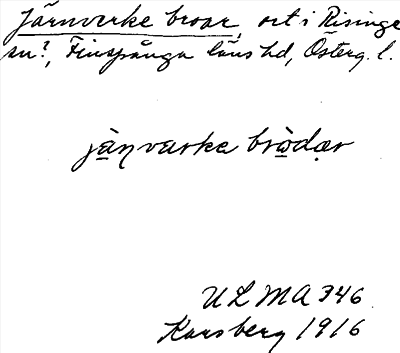 Järnverke broar, ort i Risinge
sn?, Finspånga läns hd, Österg. l.
jä̀ṇvarke brò̲dạr
ULMA 346
Karsberg 1916